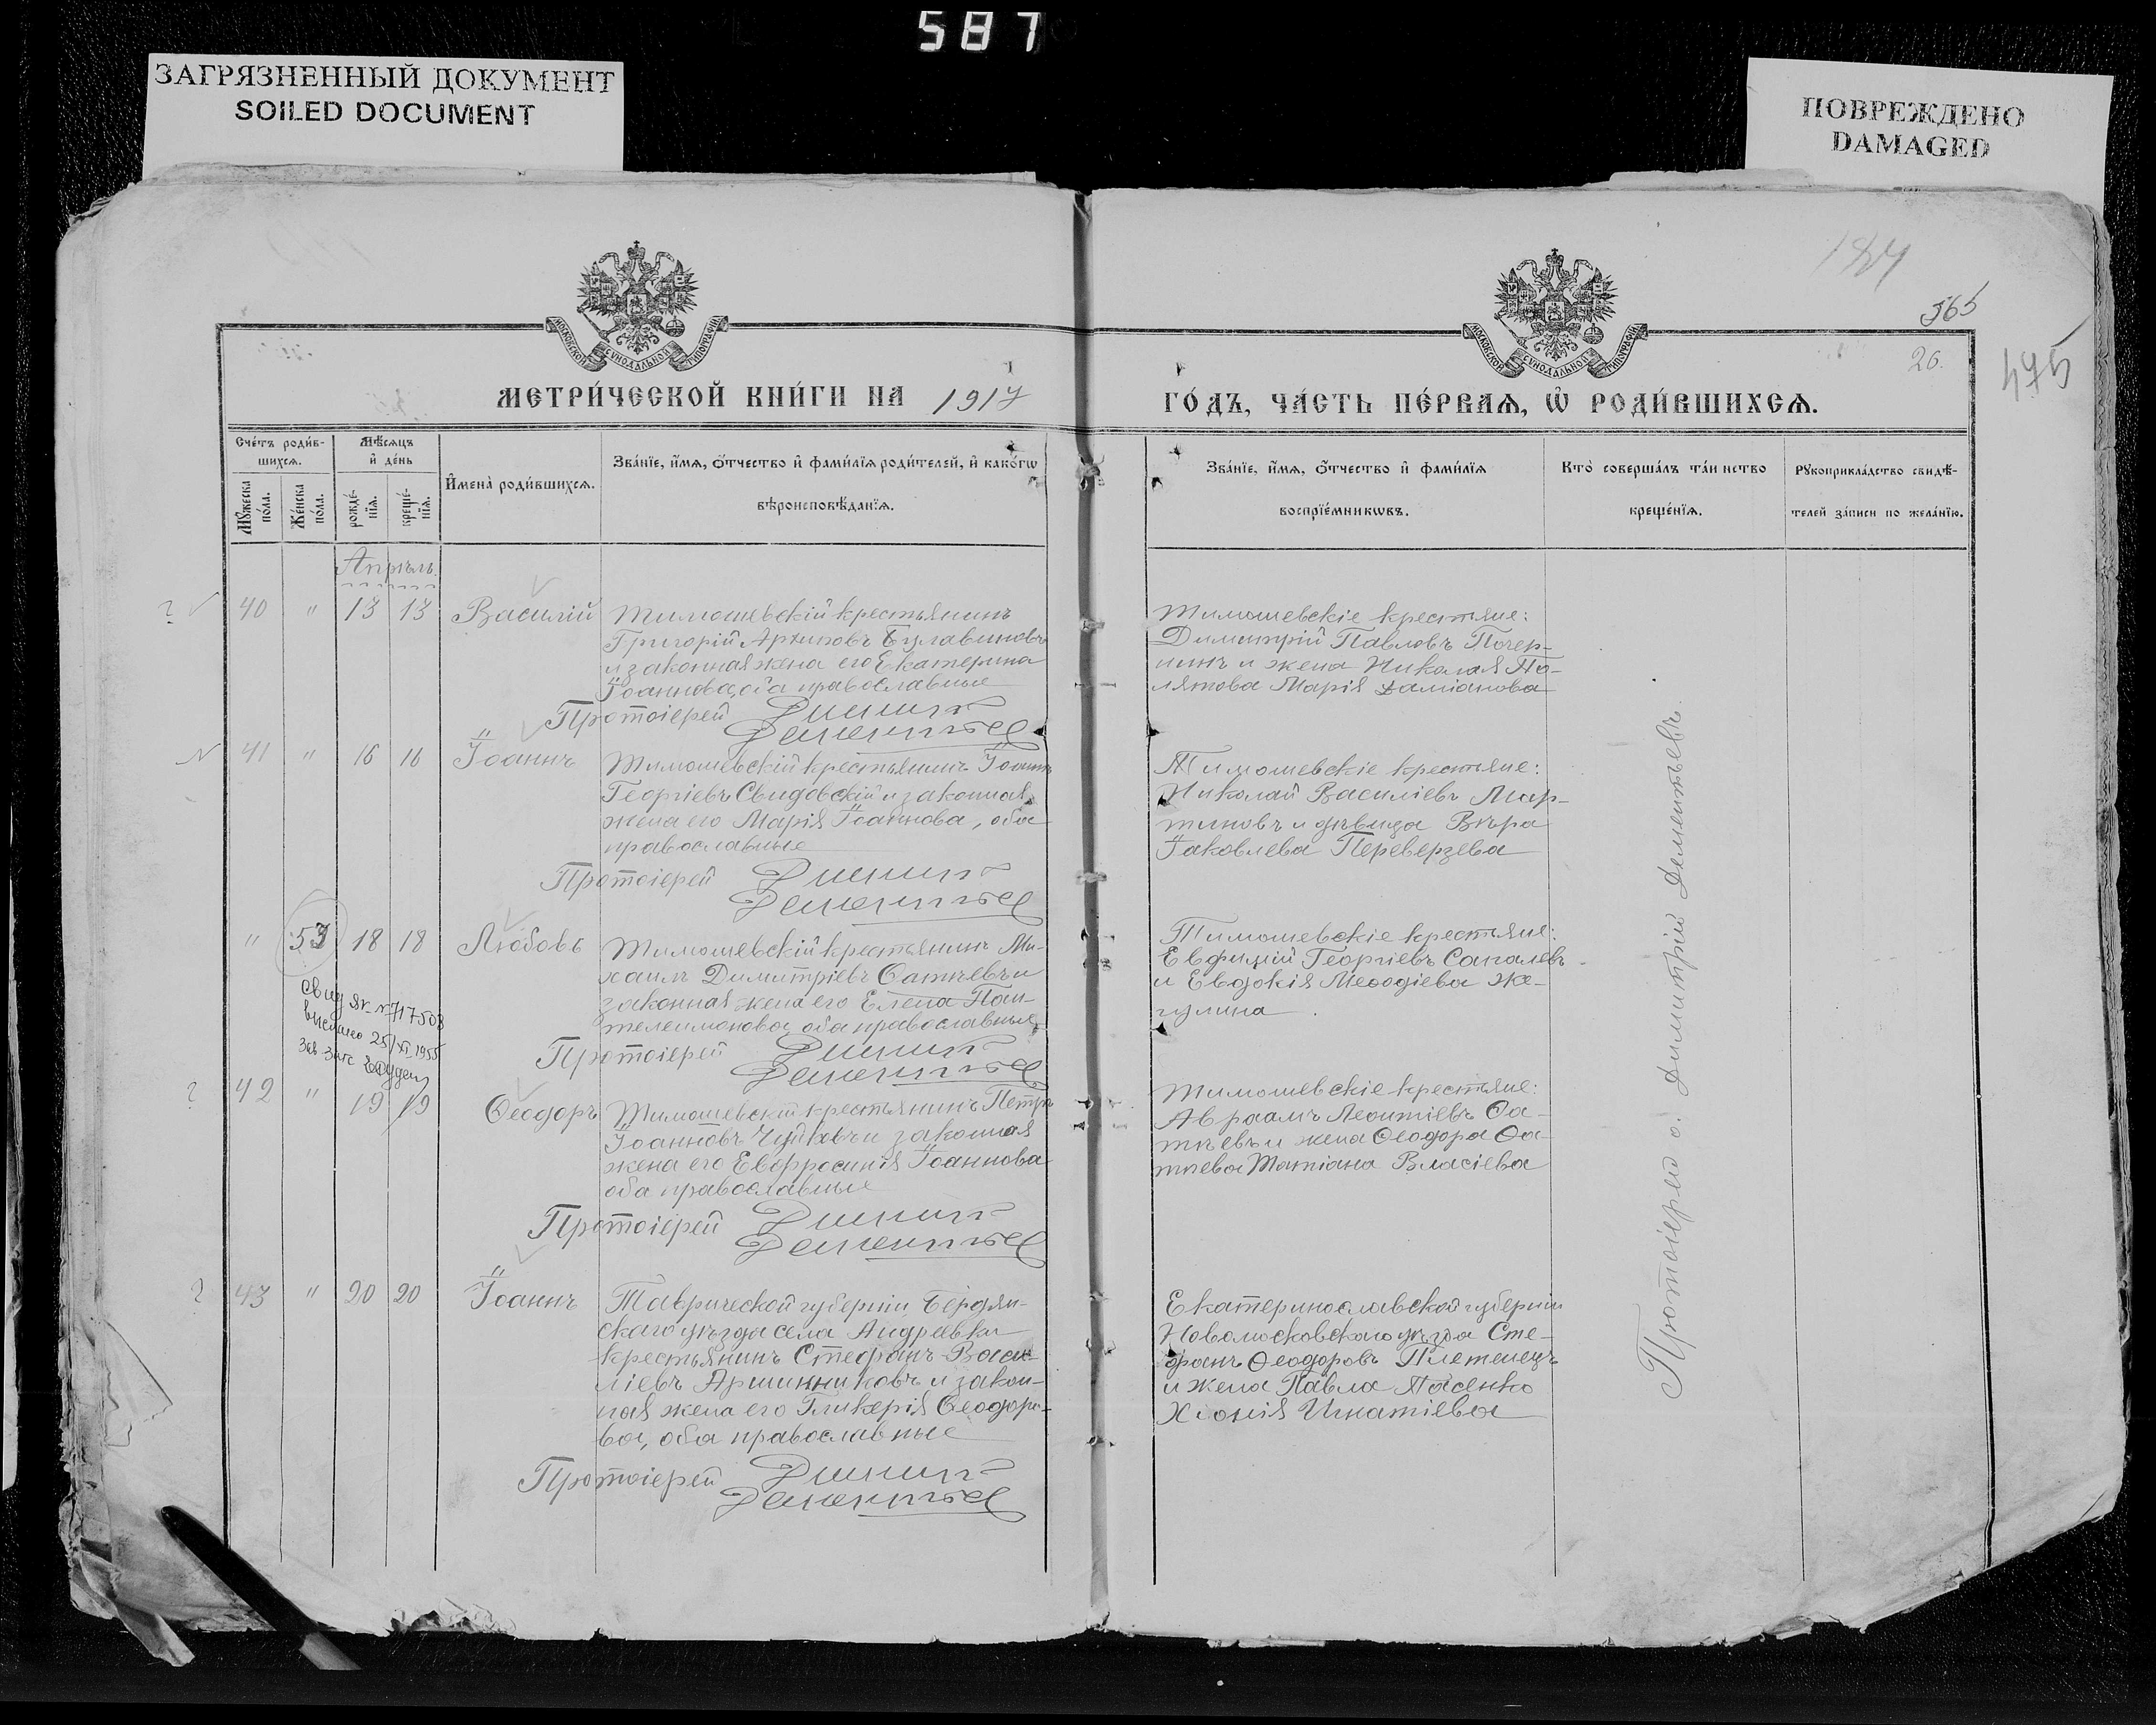 587
ЗАГРЯЗНЕННЫЙ ДОКУМЕНТ
SOILED DOCUMENT
ПОВРЕЖДЕНО
DAMAGED
365
26.
475
МОСКОВСКОЙ СѴНОДАЛЬНОЙ ТИПОГРАФІИ
МОСКОВСКОЙ СѴНОДАЛЬНОЙ ТИПОГРАФІИ
МЕТРИ́ЧЕСКОЙ КНИ́ГИ НА 1917
ГО́ДЪ, ЧА́СТЬ ПЕ́РВАѦ, Ѡ҆ РОДИ́ВШИХСѦ.
Сче́тъ роди́вшихсѧ.
Мꙋ́жеска по́ла.
Же́нска по́ла.
Мѣ́сѧцъ и҆ де́нь
рожде́нїѧ.
креще́нїѧ.
И҆мена̀ роди́вшихсѧ.
Зва́нїе, и҆́мѧ, ѻ҆́тчество и҆ фами́лїѧ роди́телей, и҆ како́гѡ
вѣроисповѣ́данїѧ.
Зва́нїе, и҆́мѧ, ѻ҆́тчество и҆ фами́лїѧ
воспрїе́мникѡвъ.
Кто̀ соверша́лъ та́инство
креще́нїѧ.
Рꙋкоприкла́дство свидѣ́-
телей за́писи по жела́нїю.
Апрѣль.
40 " 13 13 Василій
Тимошевскій крестьянинъ
Григорій Архиповъ Булавиновъ
и законная жена его Екатерина
Іоаннова, оба православные
Протоіерей Димит.
Дементьев
Тимошевскіе крестьяне:
Димитрій Павловъ Почер-
нинъ и жена Николая По-
лятова Марія Даміанова
41 " 16 16 Іоаннъ
Тимошевскій крестьянинъ Іоаннъ
Георгіевъ Свидовскій и законная
жена его Марія Іоаннова, оба
православные
Протоіерей Димит.
Дементьев
Тимошевскіе крестьяне:
Николай Василіевъ Мар-
тиновъ и дѣвица Вѣра
Іаковлева Переверзева
" 53 18 18 Любовь
Тимошевскій крестьянинъ Ми-
хаилъ Димитріевъ Фатѣевъ и
законная жена его Елена Пан-
телеимонова, оба православные
Протоіерей Димит.
Дементьев
Тимошевскіе крестьяне:
Евфимій Георгіевъ Сапалевъ
и Евдокія Меѳодіева Же-
гулина
Свид ЯК № 717508
выслано 25/XI 1955
Зав Загс
42 " 19 19 Ѳеодоръ
Тимошевскій крестьянинъ Петръ
Іоанновъ Чуйковъ и законная
жена его Евфросинія Іоаннова
оба православные
Протоіерей Димит.
Дементьев
Тимошевскіе крестьяне:
Авраамъ Леонтіевъ Фа-
тѣевъ и жена Ѳеодора Фа-
тѣева Татіана Власіева
43 " 20 20 Іоаннъ
Таврической губерніи Бердян-
скаго уѣзда села Андреевки
крестьянинъ Стефанъ Васи-
ліевъ Аршинниковъ и закон-
ная жена его Гликерія Ѳеодоро-
ва, оба православные
Протоіерей Димит.
Дементьев
Екатеринославской губерніи
Новомосковскаго уѣзда Сте-
фанъ Ѳеодоровъ Плетенецъ
и жена Павла Пасенко
Хіонія Игнатіева
Протоіерей о. Димитрій Дементьевъ.